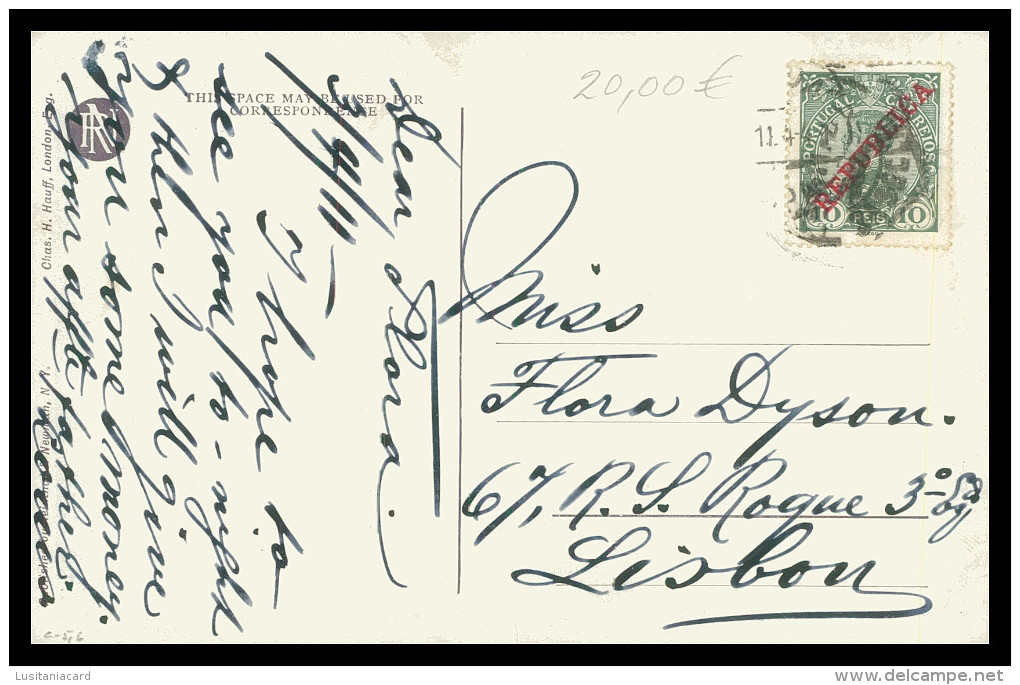 THIS SPACE MAY BE USED FOR
CORRESPONDENCE
Chas. H. Hauff, London, Eng.
11/4/11
Dear Flora.
I hope to
see you to-night
& then I will give
you some money.
Your affte father
20,00 €
PORTUGAL CORREIOS
REPUBLICA
10 REIS 10
11.4
Miss
Flora Dyson.
67, R. S. Roque 3º
Lisbon
Lusitaniacard
www.delcampe.net